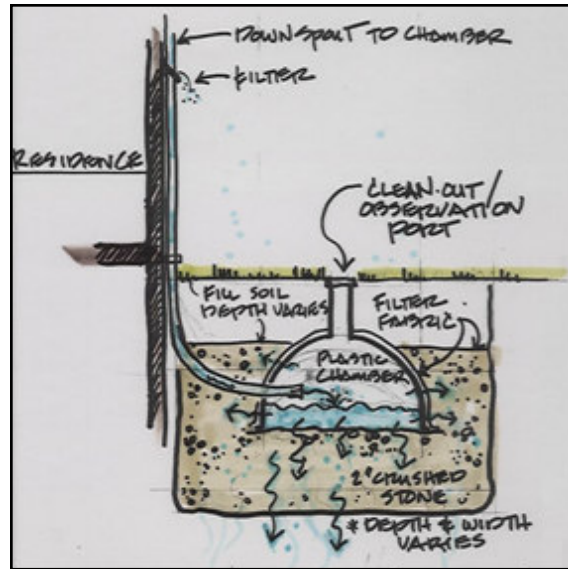 DOWNSPOUT TO CHAMBER
FILTER
RESIDENCE
CLEAN-OUT/
OBSERVATION
PORT
FILL SOIL
DEPTH VARIES
FILTER
FABRIC
PLASTIC
CHAMBER
2" CRUSHED
STONE
* DEPTH & WIDTH
VARIES